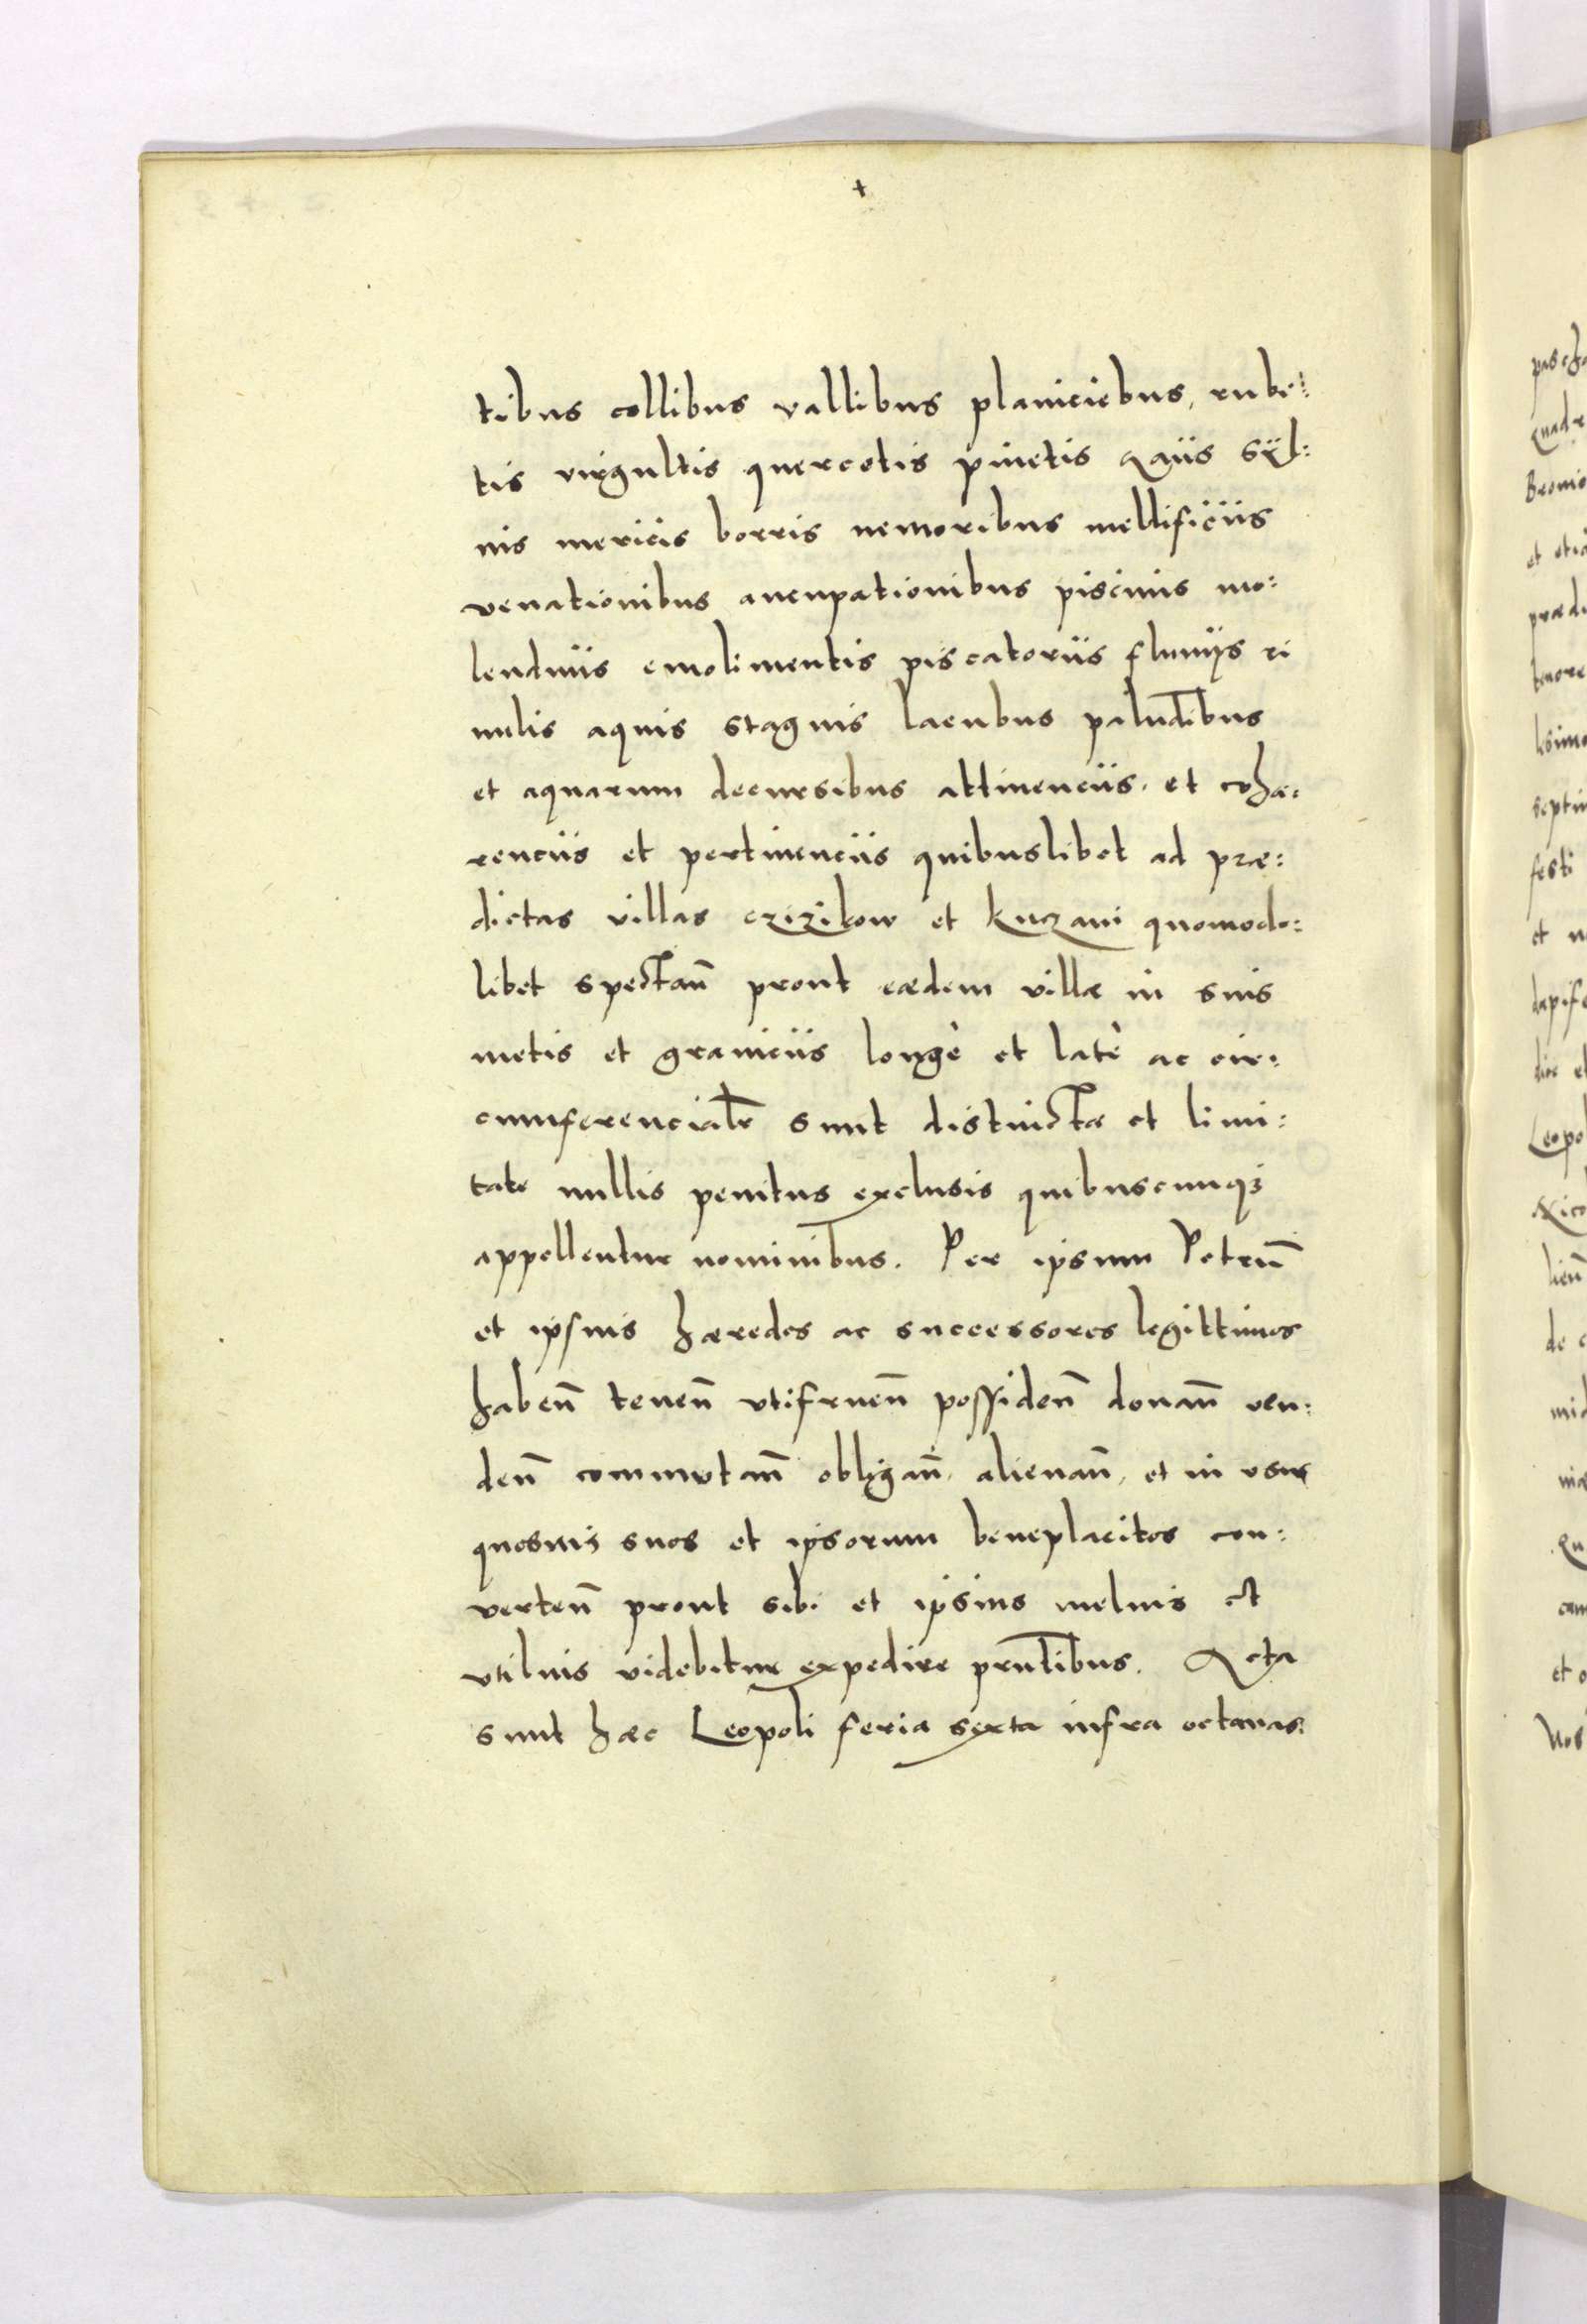 +
tibus collibus vallibus planiciebus, rube:
tis virgultis quercetis pinetis gaiis syl:
uis mericis borris nemoribus mellificiis
venationibus aucupationibus piscinis mo:
lendinis emolimentis piscatoriis fluuijs ri
uulis aquis stagnis lacubus paludibus
et aquarum decursibus attinenciis, et cohæ:
renciis et pertinenciis quibuslibet ad præ:
dictas villas czizikow et kuczani quomodo:
libet spectan̄ prout eædem villæ in suis
metis et graniciis longè et latè ac cir:
cumferencialr̄ sunt distinctæ et limi:
tate nullis penitus exclusis quibuscunqꝫ
appellentur nominibus. Per ipsum Petrum̄
et ipsius hæredes ac successores legittimos
haben̄ tenen̄ vtifruen̄ possiden̄ donan̄ ven:
den̄ commutan̄ obligan̄, alienan̄, et in vsus
quosuis suos et ipsorum beneplacitos con:
verten̄ prout sibi et ipsius melius et
vtilius videbitur expedire prn̄tibus. Acta
sunt hæc Leopoli feria sexta infra octauas